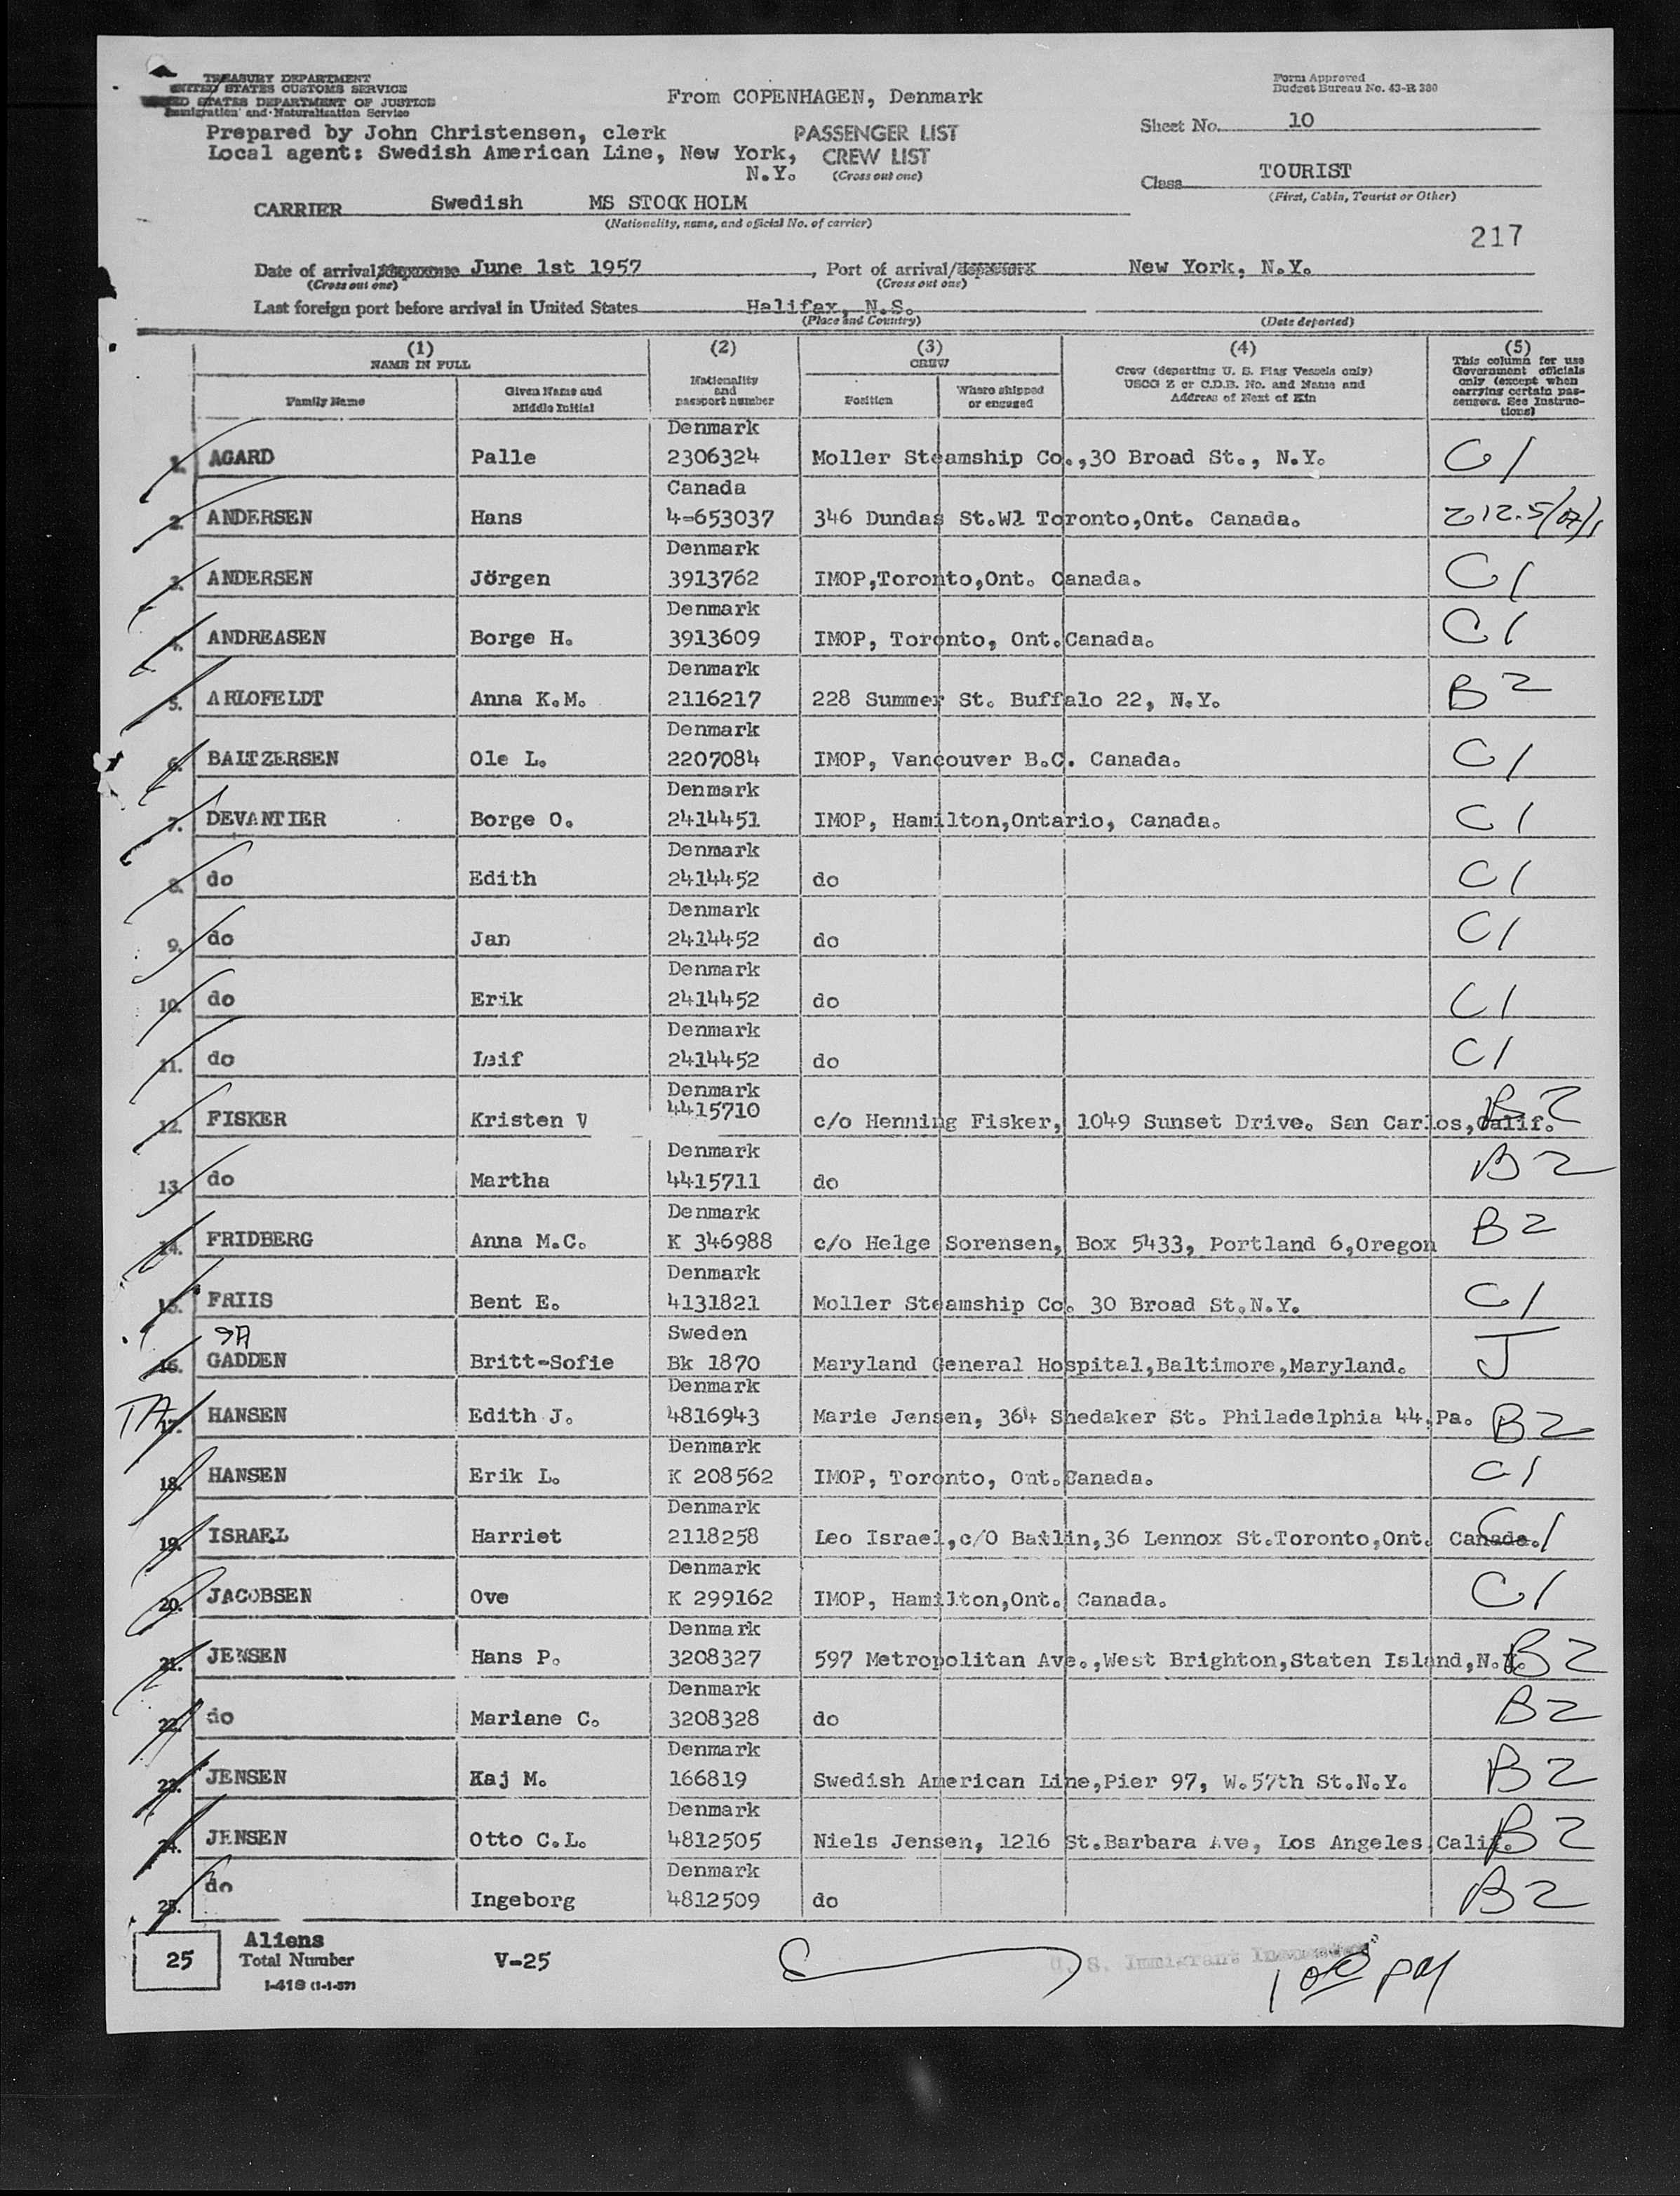 TREASURY DEPARTMENT
UNITED STATES CUSTOMS SERVICE
STATES DEPARTMENT OF JUSTICE
Immigration and Naturalization Service
From COPENHAGEN, Denmark
Form Approved
Budget Bureau No. 43-R 380
Prepared by John Christensen, clerk
PASSENGER LIST
Sheet No. 10
Local agent: Swedish American Line, New York,
CREW LIST
N.Y.
(Cross out one)
Class TOURIST
(First, Cabin, Tourist or Other)
CARRIER Swedish MS STOCKHOLM
(Nationality, name, and official No. of carrier)
217
Date of arrival/ June 1st 1957, Port of arrival/ New York, N.Y.
(Cross out one) (Cross out one)
Last foreign port before arrival in United States Halifax, N.S.
(Place and Country) (Date departed)
(1) (2) (3) (4) (5)
NAME IN FULL
Family Name
Given Name and Middle Initial
Nationality and passport number
CREW
Position
Where shipped or engaged
Crew (departing U. S. Flag Vessels only)
USCG Z or C.D.B. No. and Name and
Address of Next of Kin
This column for use
Government officials
only (except when
carrying certain pas-
sengers. See Instruc-
tions)
Denmark
1. AGARD Palle 2306324 Moller Steamship Co.,30 Broad St., N.Y. C1
Canada
2. ANDERSEN Hans 4-653037 346 Dundas St.Wl Toronto,Ont. Canada.
Denmark
3. ANDERSEN Jörgen 3913762 IMOP,Toronto,Ont. Canada. C1
Denmark
4. ANDREASEN Borge H. 3913609 IMOP, Toronto, Ont.Canada. C1
Denmark
5. ARLOFELDT Anna K.M. 2116217 228 Summer St. Buffalo 22, N.Y. B2
Denmark
6. BALTZERSEN Ole L. 2207084 IMOP, Vancouver B.C. Canada. C1
Denmark
7. DEVANTIER Borge O. 2414451 IMOP, Hamilton,Ontario, Canada. C1
Denmark
8. do Edith 2414452 do C1
Denmark
9. do Jan 2414452 do C1
Denmark
10. do Erik 2414452 do C1
Denmark
11. do Leif 2414452 do C1
Denmark
12. FISKER Kristen V 4415710 c/o Henning Fisker, 1049 Sunset Drive. San Carlos,Calif. B2
Denmark
13. do Martha 4415711 do B2
Denmark
14. FRIDBERG Anna M.C. K 346988 c/o Helge Sorensen, Box 5433, Portland 6,Oregon B2
Denmark
15. FRIIS Bent E. 4131821 Moller Steamship Co. 30 Broad St.N.Y. C1
Sweden
16. GADDEN Britt-Sofie Bk 1870 Maryland General Hospital,Baltimore,Maryland. J
Denmark
TA 17. HANSEN Edith J. 4816943 Marie Jensen, 364 Shedaker St. Philadelphia 44,Pa. B2
Denmark
18. HANSEN Erik L. K 208562 IMOP, Toronto, Ont.Canada. C1
Denmark
19. ISRAEL Harriet 2118258 Leo Israel,c/O Batlin,36 Lennox St.Toronto,Ont. Canada. C1
Denmark
20. JACOBSEN Ove K 299162 IMOP, Hamilton,Ont. Canada. C1
Denmark
21. JENSEN Hans P. 3208327 597 Metropolitan Ave.,West Brighton,Staten Island,N.Y. B2
Denmark
22. do Mariane C. 3208328 do B2
Denmark
23. JENSEN Kaj M. 166819 Swedish American Line,Pier 97, W.57th St.N.Y. B2
Denmark
24. JENSEN Otto C.L. 4812505 Niels Jensen, 1216 St.Barbara Ave, Los Angeles Calif. B2
Denmark
25. do Ingeborg 4812509 do B2
25 Aliens
Total Number
V-25
I-418 (1-1-57)
U. S. Immigrant Inspector
100 PM